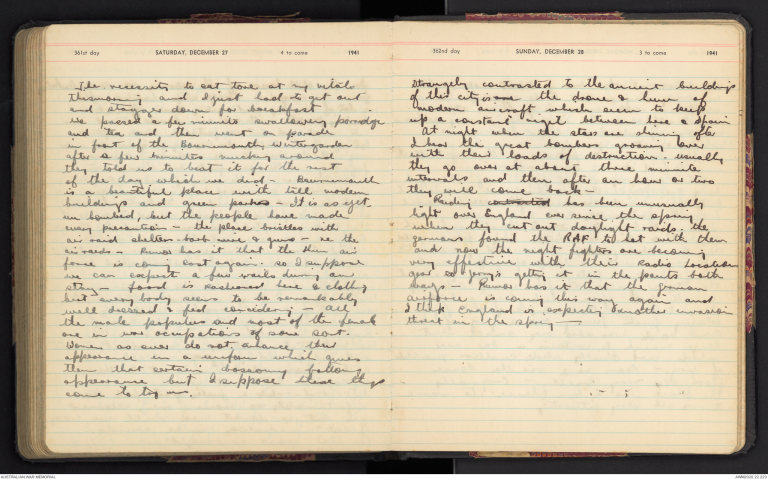 361st day SATURDAY, DECEMBER 27 4 to come 1941
The necessity to eat tore at my vitals
this morning and I just had to get out
and stagger down for breakfast
We passed a few minutes swallowing porridge
and tea and then went on parade
in front of the Bournemouth Wintergarden
after a few minutes mucking around
they told us to beat it for the rest
of the day which we did - Bournemouth
is a beautiful place with tall modern
buildings and green parks - It is as yet
un bombed, but the people have made
every precaution - the place bristles with
air raid shelters barb wire & guns - re the
air raids - Rumor has it that the Hun air
force is coming east again so I suppose
we can expect a few raids during our
stay - food is rationed here & clothes
but every body seems to be remarkably
well dressed & fed considering - All
the male population and most of the female
are in war occupations of some sort.
Women as ever do not their
appearance in a uniform which gives
them that certain
appearance but I suppose these things
come to try us.
362nd day SUNDAY, DECEMBER 28 3 to come 1941
Strangely contrasted to the ancient buildings
of this city is the drone & hum of
modern aircraft which seem to keep
up a constant between here & Spain
At night when the stars are shining often
I hear the great bombers groaning over
with their loads of destruction. usually
they go over at about three minute
intervals and then after an hour or two
they will come back -
Raiding has been unusually
light over England ever since the spring
when they cut out daylight raids. the
germans found the RAF to hot with them
and now the night fighters are becoming
very effective with their Radio location
gear so Jerry's getting it in the pants both
ways - Rumor has it that the german
airforce is coming this way again and
I think England is expecting another invasion
threat in the spring -
AUSTRALIAN WAR MEMORIAL
AWM2020.22.223